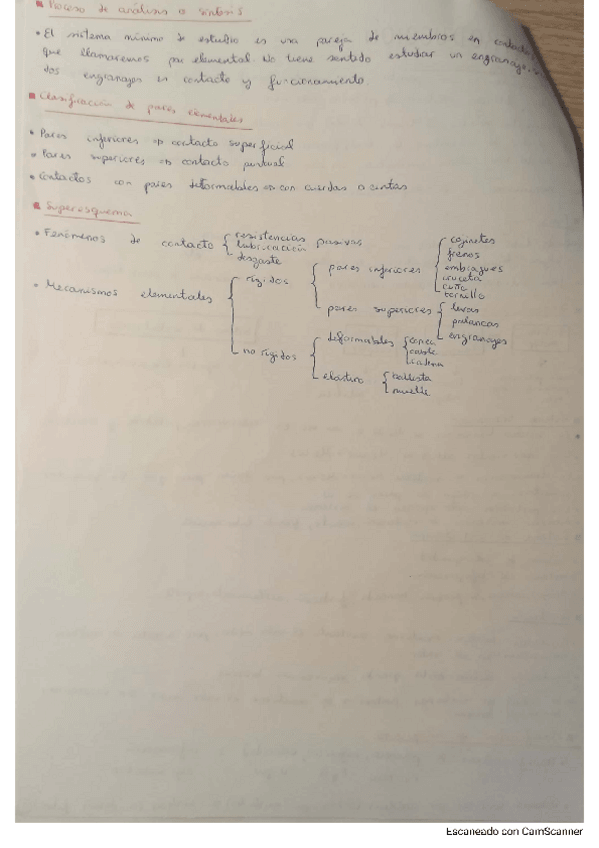 Proceso de análisis o síntesis
• El sistema mínimo de estudio es una pareja de miembros en contacto
que llamaremos par elemental. No tiene sentido estudiar un engranaje, si
dos engranajes en contacto y funcionamiento.
Clasificación de pares elementales
• Pares inferiores => contacto superficial
• Pares superiores => contacto puntual
• Contactos con pares deformables => con cuerdas o cintas
Superesquema
• Fenómenos de contacto { resistencias pasivas
lubricación
desgaste
• Mecanismos elementales { rígidos { pares inferiores { cojinetes
frenos
embragues
cruceta
cuña
tornillo
pares superiores { levas
palancas
engranajes
no rígidos { deformables { correa
cable
cadena
elástico { ballesta
muelle
Escaneado con CamScanner